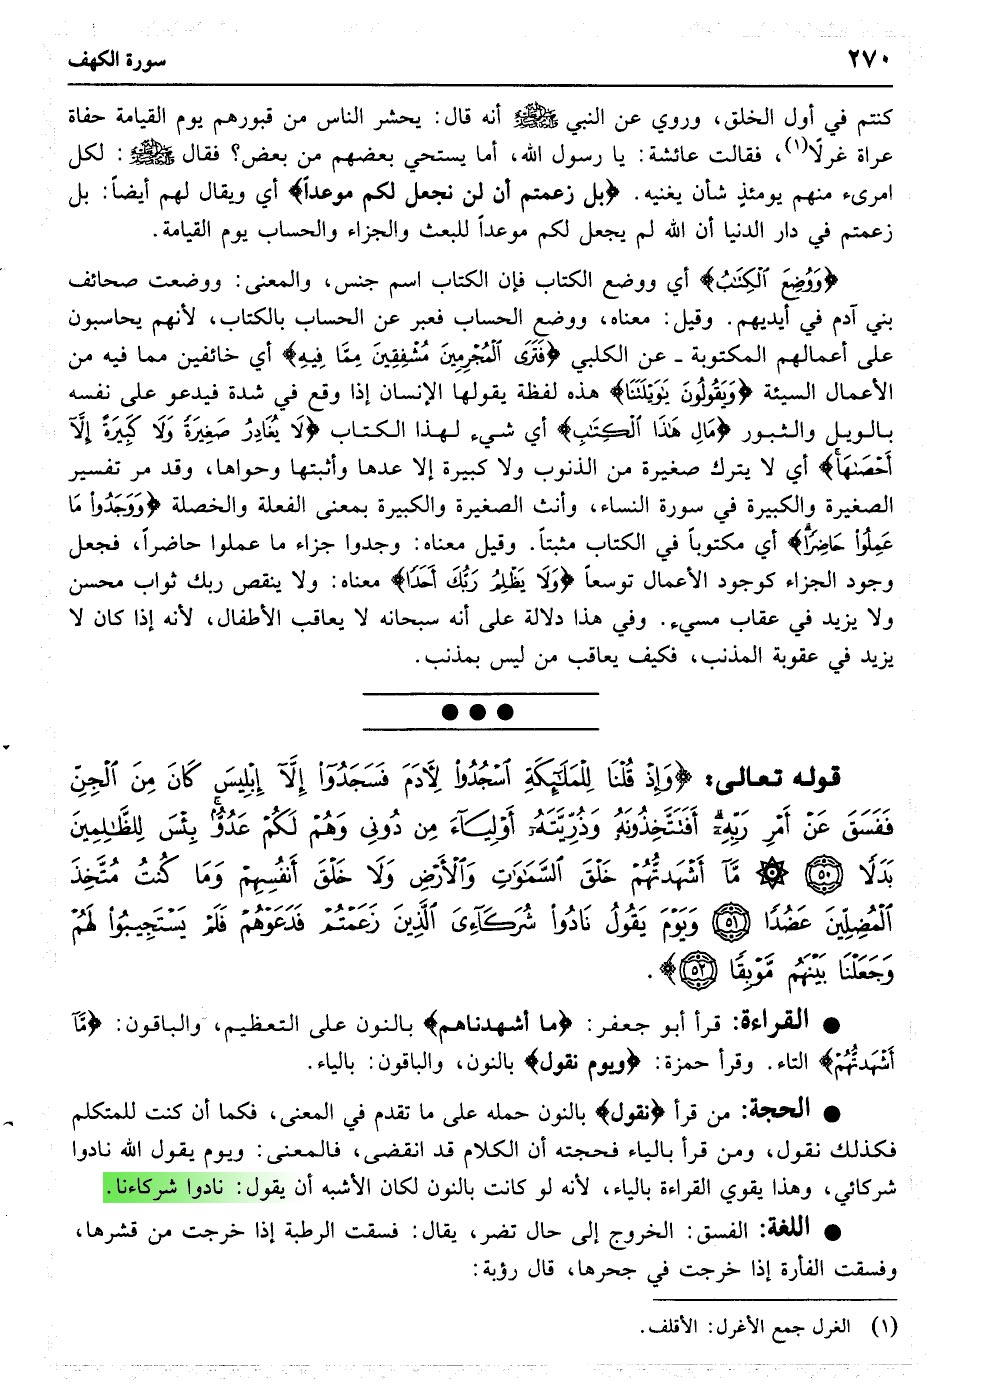 ٢٧٠ سورة الكهف
كنتم في أول الخلق، وروي عن النبي ﷺ أنه قال: يحشر الناس من قبورهم يوم القيامة حفاة
عراة غرلًا(١)، فقالت عائشة: يا رسول الله، أما يستحي بعضهم من بعض؟ فقال ﷺ: لكل
امرىء منهم يومئذٍ شأن يغنيه. ﴿بل زعمتم أن لن نجعل لكم موعداً﴾ أي ويقال لهم أيضاً: بل
زعمتم في دار الدنيا أن الله لم يجعل لكم موعداً للبعث والجزاء والحساب يوم القيامة.
﴿وَوُضِعَ ٱلْكِتَٰبُ﴾ أي ووضع الكتاب فإن الكتاب اسم جنس، والمعنى: ووضعت صحائف
بني آدم في أيديهم. وقيل: معناه، ووضع الحساب فعبر عن الحساب بالكتاب، لأنهم يحاسبون
على أعمالهم المكتوبة ـ عن الكلبي ﴿فَتَرَى ٱلْمُجْرِمِينَ مُشْفِقِينَ مِمَّا فِيهِ﴾ أي خائفين مما فيه من
الأعمال السيئة ﴿وَيَقُولُونَ يَٰوَيْلَتَنَا﴾ هذه لفظة يقولها الإنسان إذا وقع في شدة فيدعو على نفسه
بالويل والثبور ﴿مَالِ هَٰذَا ٱلْكِتَٰبِ﴾ أي شيء لهذا الكتاب ﴿لَا يُغَادِرُ صَغِيرَةً وَلَا كَبِيرَةً إِلَّآ
أَحْصَىٰهَا﴾ أي لا يترك صغيرة من الذنوب ولا كبيرة إلا عدها وأثبتها وحواها، وقد مر تفسير
الصغيرة والكبيرة في سورة النساء، وأنث الصغيرة والكبيرة بمعنى الفعلة والخصلة ﴿وَوَجَدُوا۟ مَا
عَمِلُوا۟ حَاضِرًا﴾ أي مكتوباً في الكتاب مثبتاً. وقيل معناه: وجدوا جزاء ما عملوا حاضراً، فجعل
وجود الجزاء كوجود الأعمال توسعاً ﴿وَلَا يَظْلِمُ رَبُّكَ أَحَدًا﴾ معناه: ولا ينقص ربك ثواب محسن
ولا يزيد في عقاب مسيء. وفي هذا دلالة على أنه سبحانه لا يعاقب الأطفال، لأنه إذا كان لا
يزيد في عقوبة المذنب، فكيف يعاقب من ليس بمذنب.
قوله تعالى: ﴿وَإِذْ قُلْنَا لِلْمَلَٰٓئِكَةِ ٱسْجُدُوا۟ لِـَٔادَمَ فَسَجَدُوٓا۟ إِلَّآ إِبْلِيسَ كَانَ مِنَ ٱلْجِنِّ
فَفَسَقَ عَنْ أَمْرِ رَبِّهِۦٓ أَفَتَتَّخِذُونَهُۥ وَذُرِّيَّتَهُۥٓ أَوْلِيَآءَ مِن دُونِى وَهُمْ لَكُمْ عَدُوٌّۢ بِئْسَ لِلظَّٰلِمِينَ
بَدَلًا ٥٠ ۞ مَّآ أَشْهَدتُّهُمْ خَلْقَ ٱلسَّمَٰوَٰتِ وَٱلْأَرْضِ وَلَا خَلْقَ أَنفُسِهِمْ وَمَا كُنتُ مُتَّخِذَ
ٱلْمُضِلِّينَ عَضُدًا ٥١ وَيَوْمَ يَقُولُ نَادُوا۟ شُرَكَآءِىَ ٱلَّذِينَ زَعَمْتُمْ فَدَعَوْهُمْ فَلَمْ يَسْتَجِيبُوا۟ لَهُمْ
وَجَعَلْنَا بَيْنَهُم مَّوْبِقًا ٥٢﴾.
● القراءة: قرأ أبو جعفر: ﴿ما أشهدناهم﴾ بالنون على التعظيم، والباقون: ﴿مَّآ
أَشْهَدتُّهُمْ﴾ التاء. وقرأ حمزة: ﴿ويوم نقول﴾ بالنون، والباقون: بالياء.
● الحجة: من قرأ ﴿نقول﴾ بالنون حمله على ما تقدم في المعنى، فكما أن كنت للمتكلم
فكذلك نقول، ومن قرأ بالياء فحجته أن الكلام قد انقضى، فالمعنى: ويوم يقول الله نادوا
شركائي، وهذا يقوي القراءة بالياء، لأنه لو كانت بالنون لكان الأشبه أن يقول: نادوا شركاءنا.
● اللغة: الفسق: الخروج إلى حال تضر، يقال: فسقت الرطبة إذا خرجت من قشرها،
وفسقت الفأرة إذا خرجت في جحرها، قال رؤبة:
(١) الغرل جمع الأغرل: الأقلف.